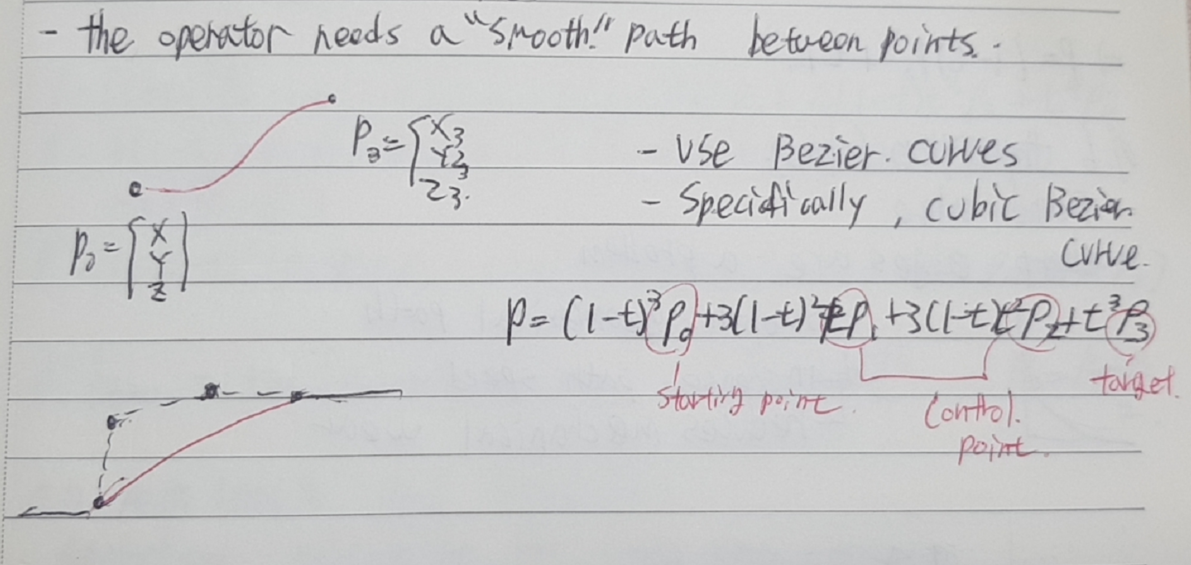 - the operator needs a "smooth!" path between points.
P₃ = [X₃
Y₃
Z₃.
- Use Bezier. curves
- Specifically, cubic Bezier
curve.
P₀ = [X
Y
Z]
P = (1-t)³P₀ + 3(1-t)²tP₁ + 3(1-t)t²P₂ + t³P₃
starting point.
Control.
point.
target.